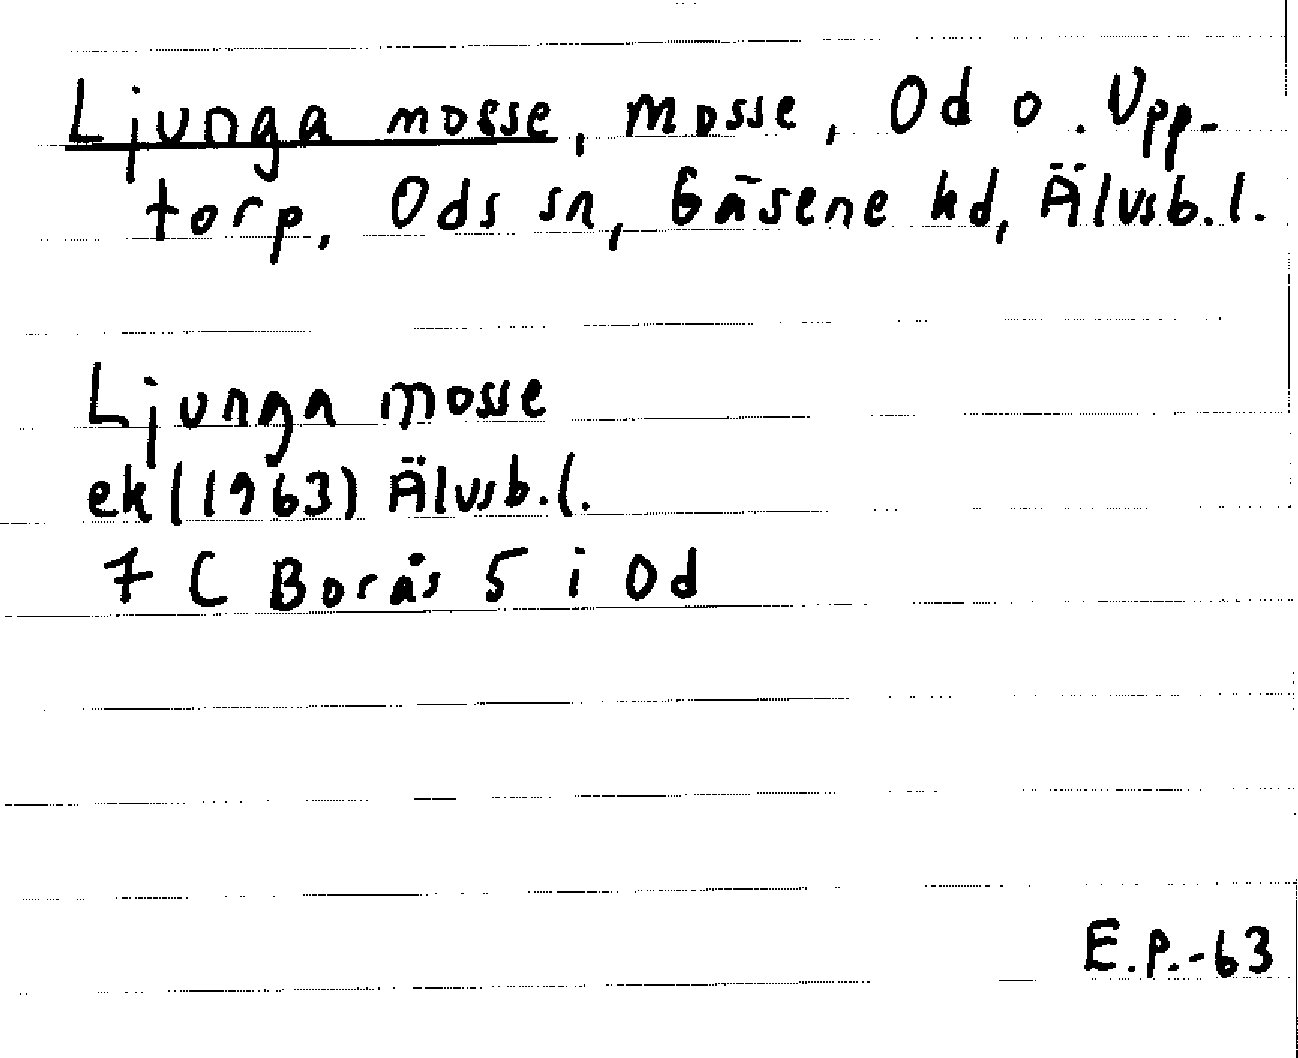 Ljunga mosse, mosse, Od o. Upp-
torp, Ods sn, Gäsene hd, Älvsb. l.
Ljunga mosse
ek (1963) Älvsb. l.
7 C Borås 5 i Od
E.P.-63